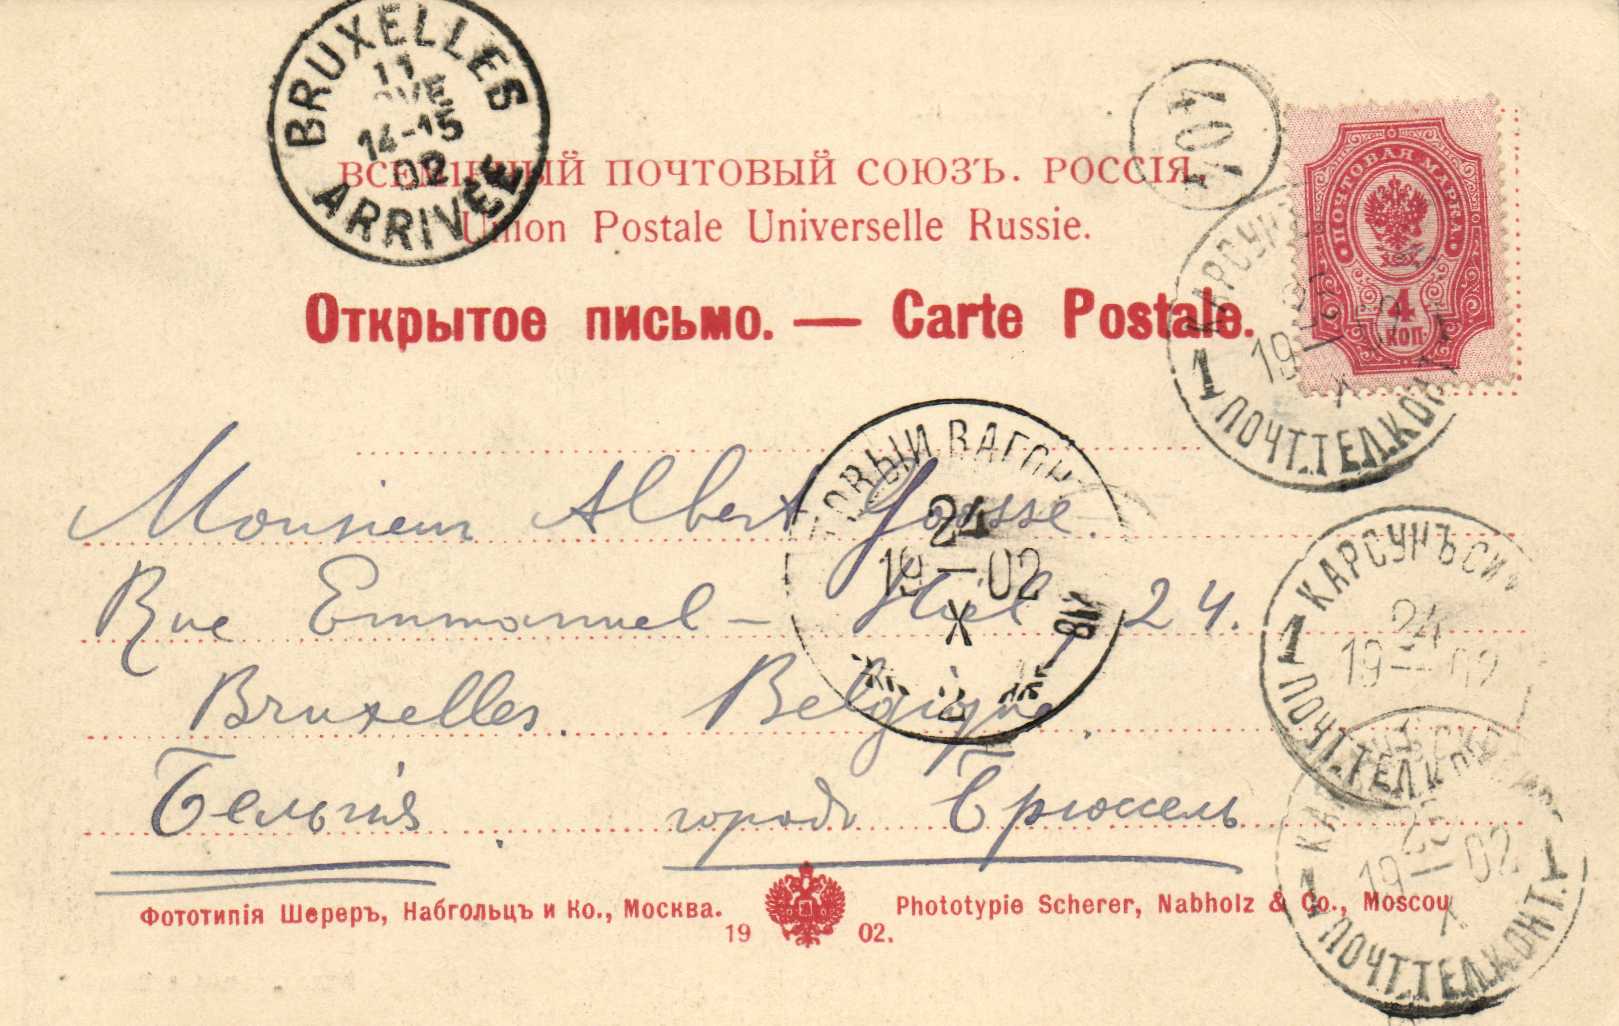 BRUXELLES
11
14-15
02
ARRIVÉE
ВСЕМІРНЫЙ ПОЧТОВЫЙ СОЮЗЪ. РОССІЯ.
Union Postale Universelle Russie.
Открытое письмо. — Carte Postale.
404
ПОЧТОВАЯ МАРКА
4
КОП.
КАРСУНЪ
19—
X
1 ПОЧТ.ТЕЛ.КОН
ВАГОНЪ
24
19—02
X
2
Monsieur Albert Gousse.
Rue Emmanuel - Hiel, 24.
Bruxelles. Belgique.
Бельгія городъ Брюссель
КАРСУНЪ СИ
24
19—02
1 ПОЧТ.ТЕЛ.К
19—02
X
1 ПОЧТ.ТЕЛ.КОНТ. 1
Фототипія Шереръ, Набгольцъ и Ко., Москва.
Phototypie Scherer, Nabholz & Co., Moscou
19 02.